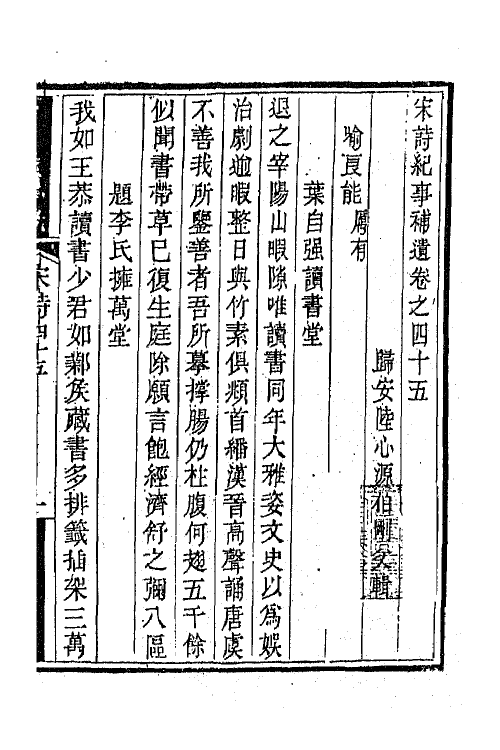 宋詩紀事補遺卷之四十五
歸安陸心源伯剛父輯
喻良能厲有
葉自强讀書堂
退之宰陽山暇隙唯讀書同年大雅姿文史以為娛
治劇逾暇整日與竹素俱頫首繙漢晉高聲誦唐虞
不善我所鑒善者吾所摹撑腸仍柱腹何趐五千餘
似聞書帶草已復生庭除願言飽經濟舒之彌八區
題李氏擁萬堂
我如王恭讀書少君如鄴侯藏書多排籤插架三萬
宋詩四十五
一